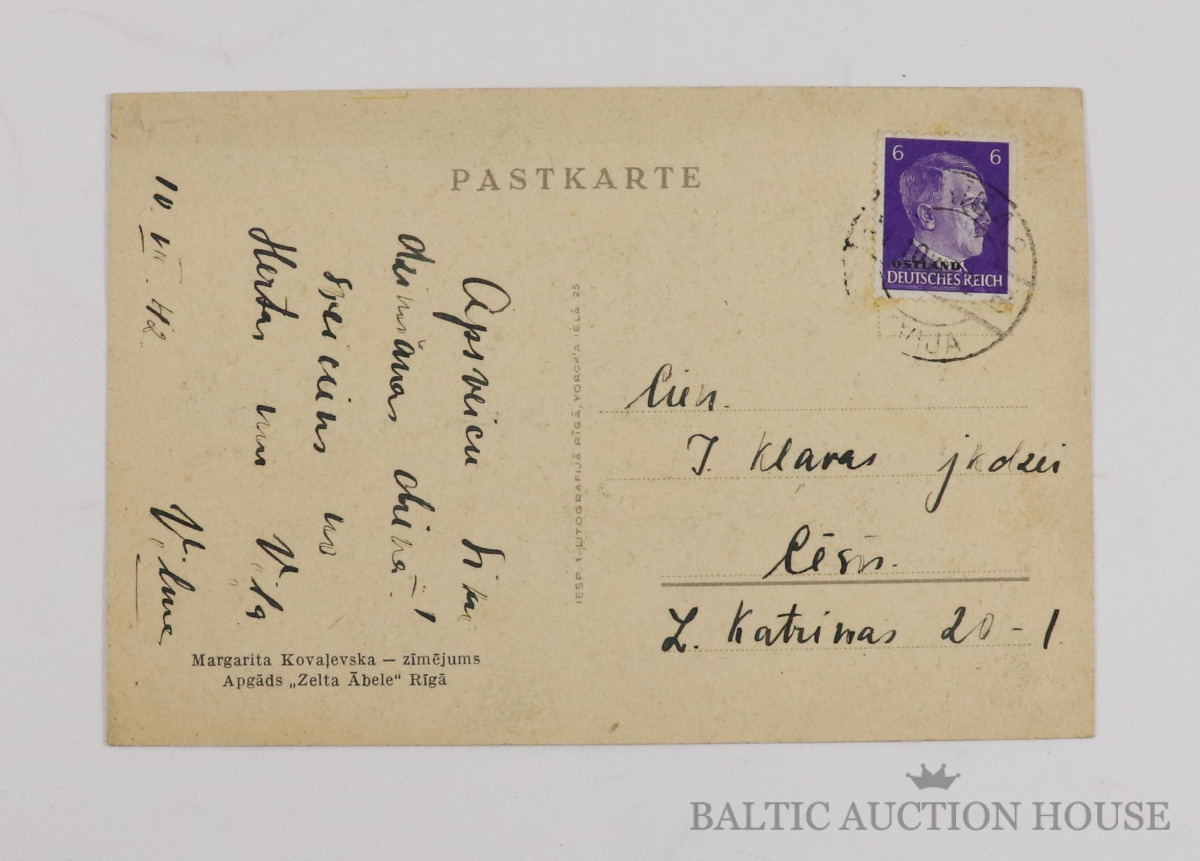 PASTKARTE
10. VIII. 42.
Apsveicu
dzimšanas dienā!
Sveiciens no
Hertas un
Margarita Kovaļevska — zīmējums
Apgāds „Zelta Ābele" Rīgā
IESP. 1. LITOGRAFIJĀ RĪGĀ, YORCK'A IELĀ 25
6 6
OSTLAND
DEUTSCHES REICH
VIJA
Cien.
J. Kļavas jkdzei
Cēsīs.
L. Katrinas 20-1.
BALTIC AUCTION HOUSE